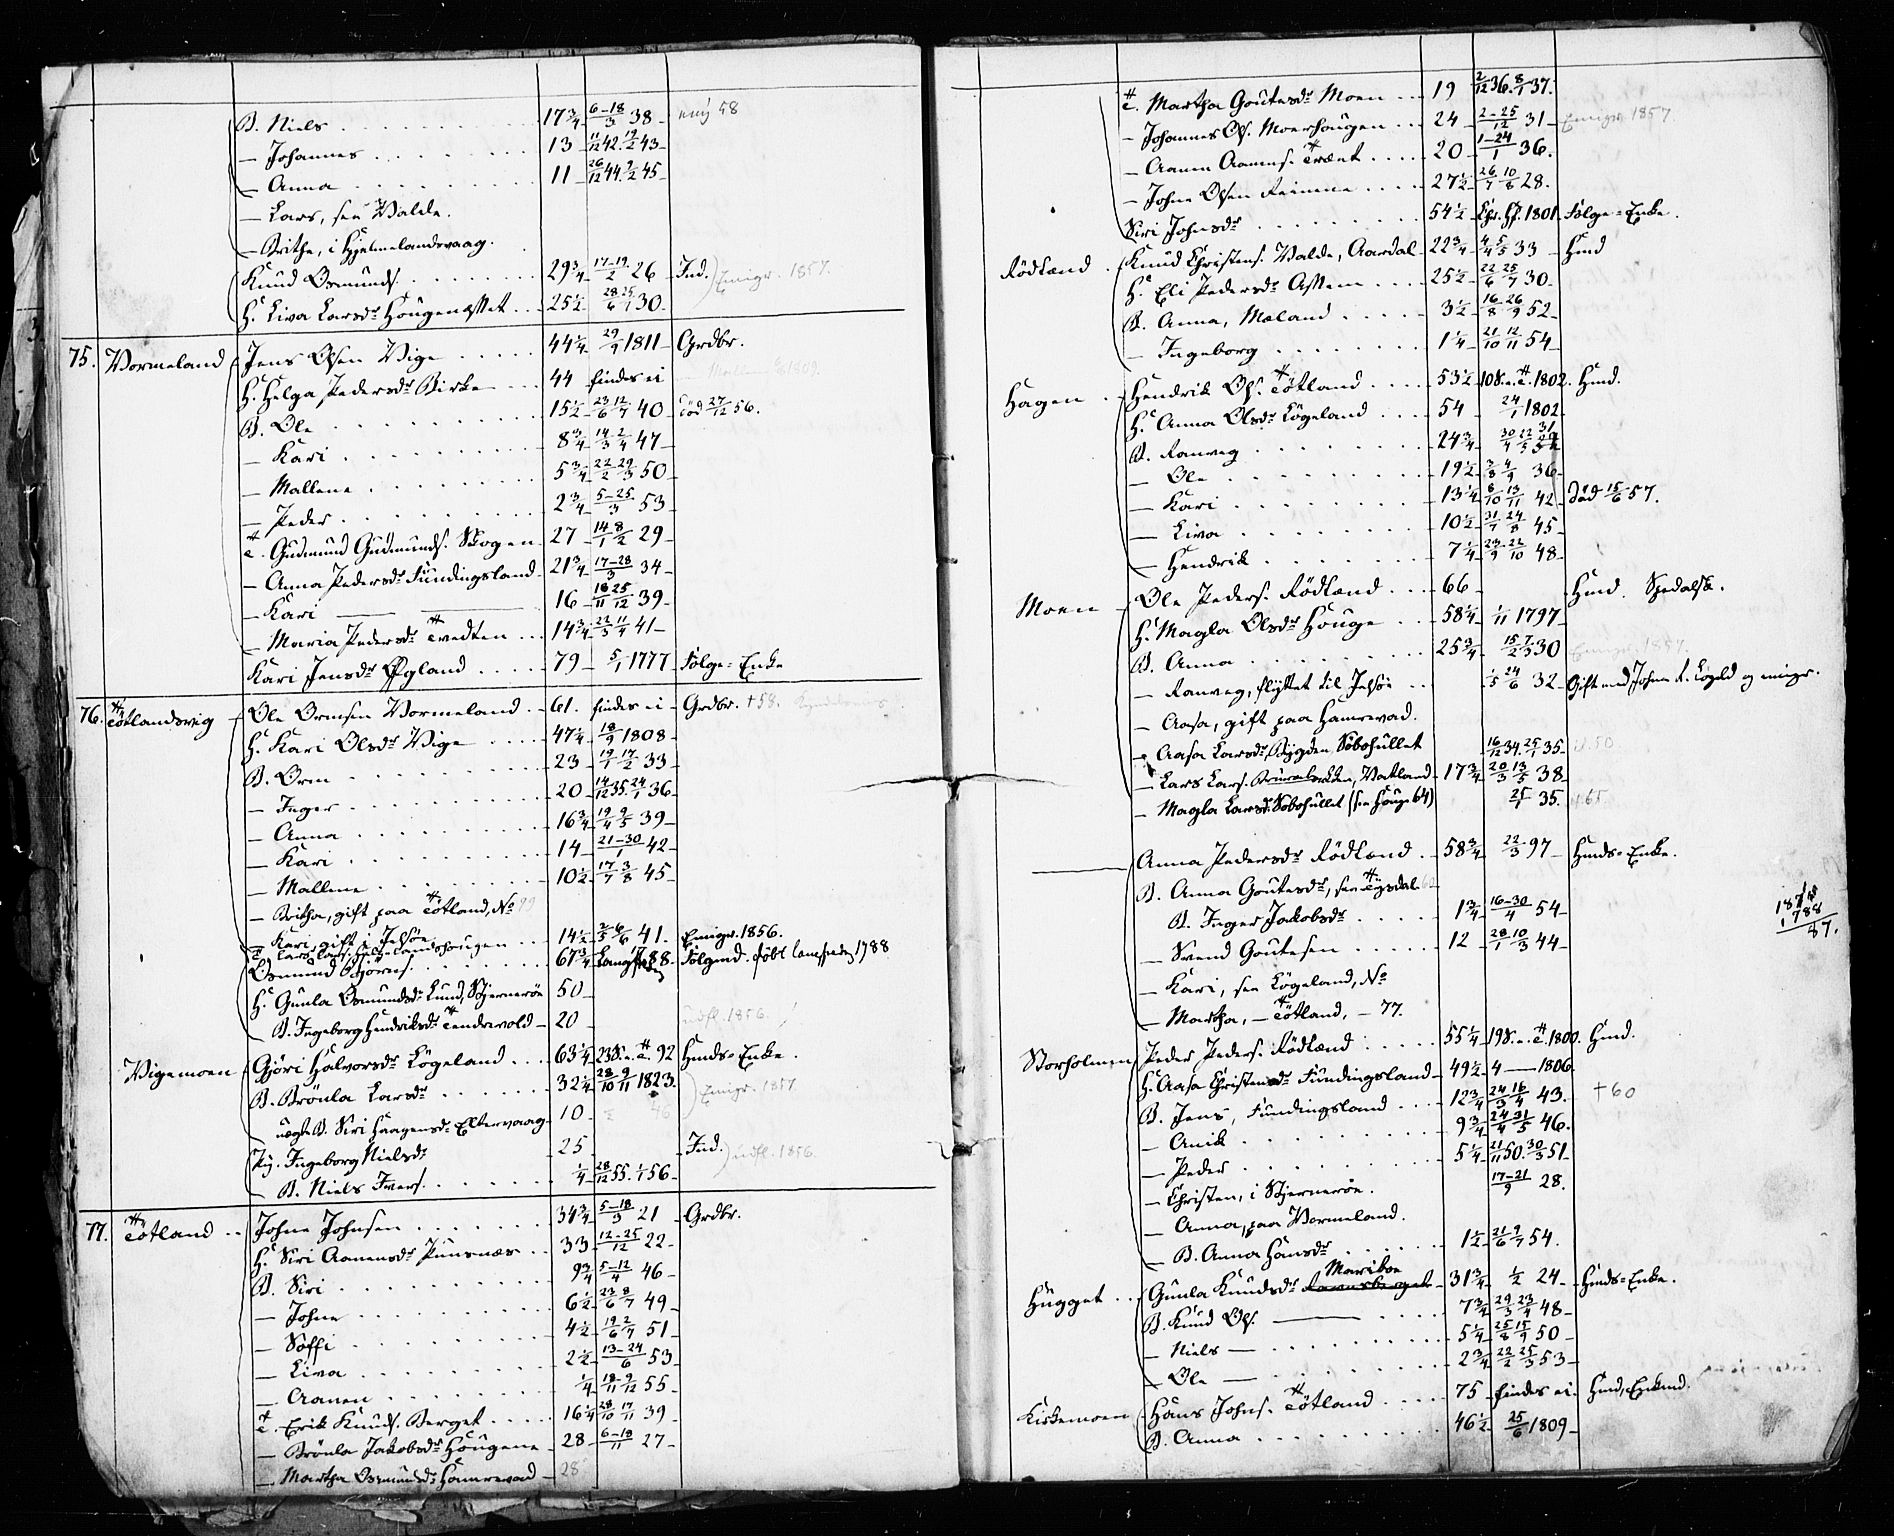 B. Niels 17¾ 6-18/3 38 emig 58
— Johannes 13 11/12 42. 12/2 43
— Anna 11 26/12 44. 2/2 45
— Lars, see Walde.
— Brithe, i Hjelmelandsvaag.
Knud Osmunds. 29¾ 17-19/2 26 Ind. Emigr. 1857.
H. Liva Larsdr Hougenæsset 25½ 28/6 25/7 30
75. Vormeland Jens Olsen Vige 44¼ 29/9 1811 Grdbr.
H. Helga Pedersdr Birke 44 findes ei
B. Ole 15½ 23/6 12/7 40 død 27/12 56.
— Kari 8¾ 14/3 2/4 47
— Mallene 5¾ 22/2 29/3 50
— Peder 2¾ 5-25/3 53
T. Gudmund Gudmunds. Skogen 27 14/1 8/2 29
— Anna Pedersdr Fundingsland 21¾ 17-28/3 34
— Kari — — 16 18/11 25/12 39
— Maria Pedersdr Tvedten 14¾ 22/3 11/4 41
Kari Jensdr Øygland 79 5/1 1777 Følge-Enke
76. Tøtlandsvig Ole Ormsen Vormeland 61. findes ei Grdbr. +58.
H. Kari Olsdr Vige 47¼ 18/9 1808
B. Orm 23 19/1 17/2 33
— Inger 20 14/12 35. 24/1 36
— Anna 16¾ 19/4 9/5 39
— Kari 14 21-30/1 42
— Mallene 10½ 17/7 3/8 45
— Britha, gift paa Tøtland, No 99
— Kari, gift i Jelsøe
T. Lars Lars. Hjelmelandshougen 14½ 3/5 6/6 41. Emigr. 1856.
Osmund Bjørns. 67¾ Langfred. 88 Følgmd. født Langfredag 1788
H. Gunla Osmundsdr Lund, Stjernerøe 50
B. Ingeborg Hendriksdr Tendrevold 20 udfl. 1856.
Vigemoen Gjøri Halvorsdr Løgeland 63¼ 23 S. e. T. 92 Hmds-Enke.
B. Brønla Larsdr 32¼ 28/10 9/11 1823. Emigr. 1857
uægte B. Siri Haagensdr Eltervaag 10 46
Pig. Ingeborg Nielsdr 25 Ind. udfl. 1856.
B. Niels Ivers. ¼ 28/12 55. 1/1 56
77. Tøtland Johne Johnsen 34¾ 5-18/3 21 Grdbr.
H. Siri Aamensdr Punsnæs 33 12-25/12 22
B. Siri 9¾ 5-12/4 46
— Johne 6½ 23/6 8/7 49
— Søffi 4½ 19/6 2/7 51
— Liva 2½ 13-24/6 53
— Aamen ¼ 18/11 9/12 55
T. Erik Knuds. Berget 16¼ 28/10 17/11 39
— Brønla Jakobsdr Hougene 28 6-18/11 27
— Martha Osmundsdr Hamrevad 28
T. Martha Goutesdr Moen 19 2/12 36. 8/1 37.
— Johannes Ols. Moerhougen 24 2-25/12 31 Emigr. 1857.
— Aamen Aamens. Trænt 20 1-24/1 36.
— Johne Olsen Reimene 27½ 26/7 10/8 28.
Siri Johnsdr 54½ Chr. Hf. 1801 Følge-Enke.
Rödland Knud Christens. Walde, Aardal 22¾ 4/4 5/5 33 Hmd
H. Eli Pedersdr Assen 25½ 22/6 25/7 30
B. Anna, Mæland 3½ 16/8 26/9 52
— Ingeborg 1¼ 21/10 12/11 54
Hagen Hendrik Ols. Tøtland 53½ 10 S. e. T. 1802. Hmd.
H. Anna Olsdr Løgeland 54 24/1 1802
B. Ranveg 24¾ 30/4 22/5 31
— Ole 19½ 3/8 4/9 36
— Kari 13¼ 8/10 13/11 42 død 15/6 57.
— Liva 10½ 31/7 24/8 45
— Hendrik 7¼ 23/9 22/10 48
Moen Ole Peders. Rödland 66 Hmd. Spedalsk.
H. Magla Olsdr Houge 58¼ 1/11 1797
B. Anna 25¾ 15/2 7/3 30 Emigr. 1857.
— Ranveg, flyttet til Jelsöe 1/5 24/6 32 Gift med Johne R. Løgeld og emigr.
— Aasa, gift paa Hamrevad.
— Aasa Larsdr, Bygden, Sobohullet 16/12 34. 25/1 35
— Lars Lars. Vatland 17¾ 20/3 13/5 38
— Magla Larsdr. Sobohullet (see Houge 64) 25/1 35.
— Anna Pedersdr Rödland 58¾ 22/3 97 Hmds-Enke.
B. Anna Goutesdr, see Tysdal
B. Inger Jakobsdr 1¾ 16-30/4 54
— Svend Goutesen 12 28/1 10/3 44
— Kari, see Løgeland, No
— Martha, — Tøtland, — 77.
1875
1788
87.
Storholmen Peder Peders. Rödland 55¼ 19 S. e. T. 1800. Hmd.
H. Aasa Christensdr Fundingsland 49½ 4 — 1806.
B. Jens, Fundingsland 12¾ 24/3 16/4 43. +60
— Anik 9¾ 24/4 31/5 46.
— Peder 5¼ 21/11 50. 30/3 51
— Christen, i Stjernerøe. 17-21/9 28.
— Anna, paa Vormeland.
— B. Anna Hansdr 1½ 21/6 9/7 54.
Hügget Gunla Knudsdr Mariboe 31¾ 1/2 24 Hmds-Enke.
B. Knud Ols. — 7¾ 29/3 23/4 48
— Niels — 5¼ 25/8 15/9 50
— Ole — 2¾ 22/2 25/3 53
Kirkemoen Hans Johns. Tøtland 75 findes ei. Hmd, Enkmd.
B. Anna 46½ 25/6 1809